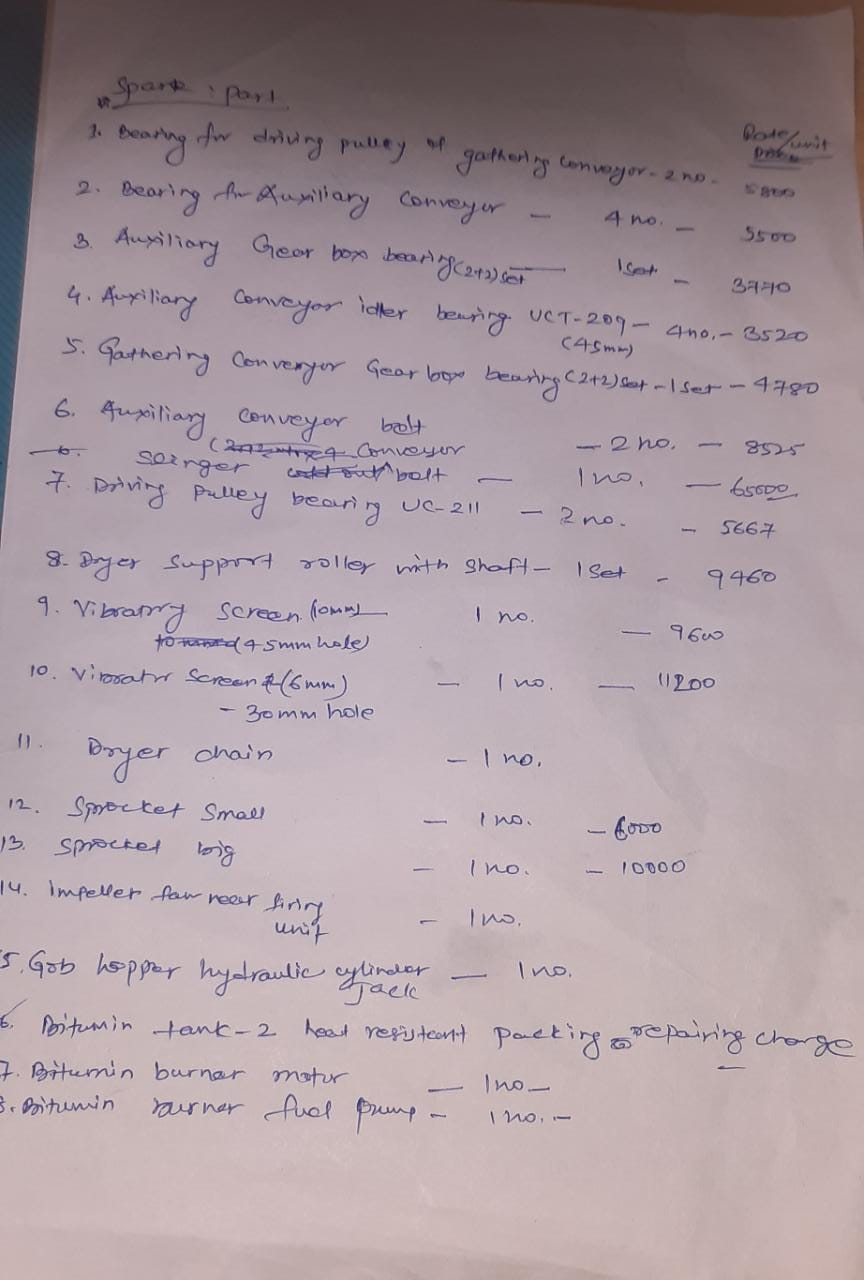 Spare : part
Rate/unit
1. Bearing for driving pulley of gathering conveyor - 2 no. 5800
2. Bearing for Auxiliary conveyor - 4 no. - 5500
3. Auxiliary Gear box bearing (2+2) set 1 set - 3770
4. Auxiliary conveyor idler bearing UCT-209 - 4 no. - 3520
(45mm)
5. Gathering Conveyor Gear box bearing (2+2) set - 1 set - 4780
6. Auxiliary conveyor belt - 2 no. - 8525
Conveyor
belt - 1 no. - 65000
7. Driving pulley bearing UC-211 - 2 no. - 5667
8. Dryer support roller with shaft - 1 Set - 9460
9. Vibratry screen (10mm) 1 no. - 9600
(45mm hole)
10. Vibratr screen (6mm) - 1 no. - 11200
- 30mm hole
11. Dryer chain - 1 no.
12. Sprocket small - 1 no. - 6000
13. Sprocket big - 1 no. - 10000
14. impeller fan near firing
unit - 1 no.
5. Gob hopper hydraulic cylinder - 1 no.
Jack
6. Bitumin tank-2 heat resistant packing repairing charge
7. Bitumin burner motor - 1 no -
8. Bitumin burner fuel pump - 1 no. -